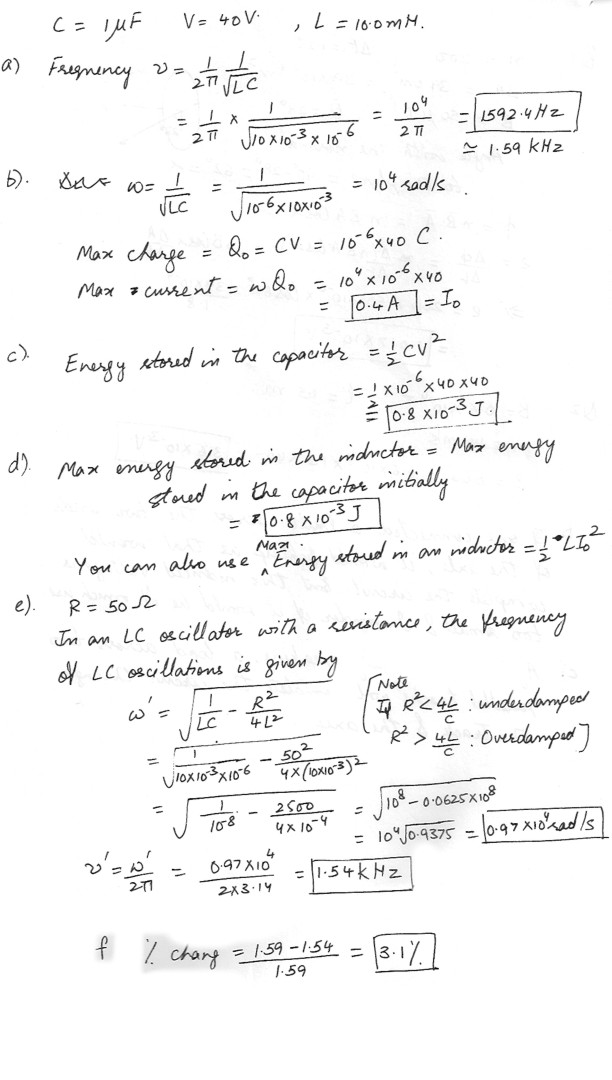 C = 1μF V = 40V. , L = 10.0mH.
a) Frequency ν = 1/2π 1/√LC
= 1/2π × 1/√(10×10⁻³ × 10⁻⁶) = 10⁴/2π = 1592.4Hz
≃ 1.59 kHz
b). ω = 1/√LC = 1/√(10⁻⁶×10×10⁻³) = 10⁴ rad/s.
Max charge = Q₀ = CV = 10⁻⁶×40 C.
Max current = ωQ₀ = 10⁴ × 10⁻⁶ × 40
= 0.4A = I₀
c). Energy stored in the capacitor = ½CV²
= ½ × 10⁻⁶ × 40 × 40
= 0.8 × 10⁻³ J.
d). Max energy stored in the inductor = Max energy
stored in the capacitor initially
= 0.8 × 10⁻³ J
You can also use Max Energy stored in an inductor = ½ LI₀²
e). R = 50Ω
In an LC oscillator with a resistance, the frequency
of LC oscillations is given by
ω' = √(1/LC - R²/4L²) [Note If R² < 4L/C : underdamped
R² > 4L/C : Overdamped]
= √(1/(10×10⁻³×10⁻⁶) - 50²/(4×(10×10⁻³)²))
= √(1/10⁻⁸ - 2500/(4×10⁻⁴)) = √(10⁸ - 0.0625×10⁸)
= 10⁴√0.9375 = 0.97×10⁴rad/s
ν' = ω'/2π = 0.97×10⁴/(2×3.14) = 1.54kHz
f % chang = (1.59 - 1.54)/1.59 = 3.1%